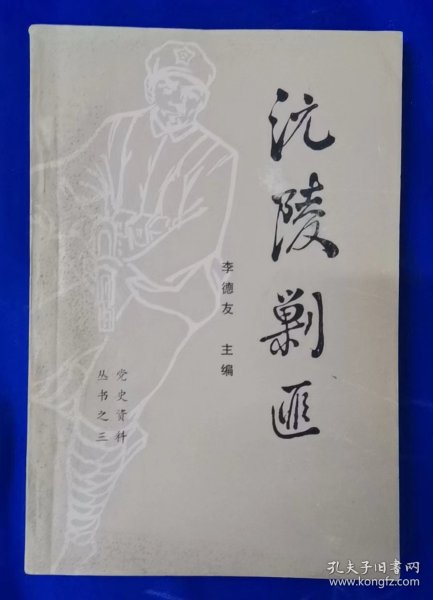 沅陵剿匪
李德友 主编
党史资料
丛书之三
孔夫子旧书网
www.kongfz.com